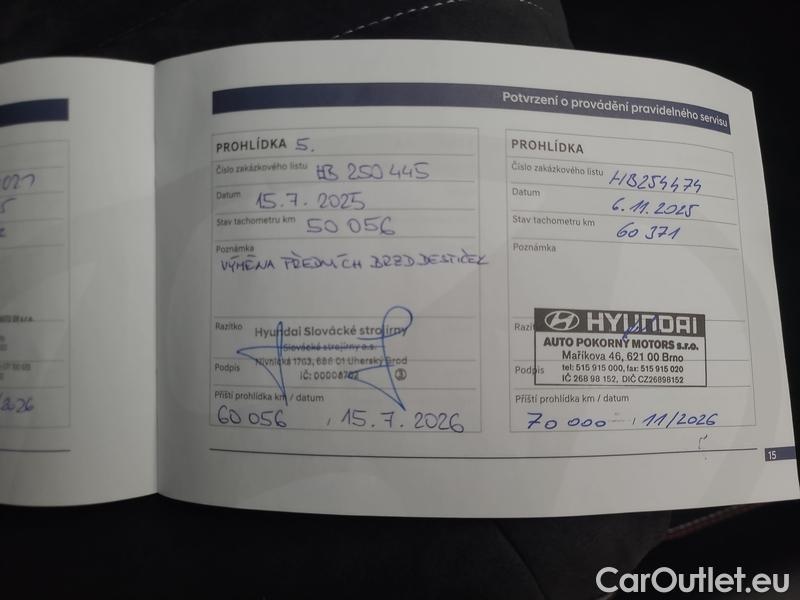 Potvrzení o provádění pravidelného servisu
PROHLÍDKA 5.
Číslo zakázkového listu HB 250445
Datum 15.7.2025
Stav tachometru km 50 056
Poznámka
VÝMĚNA PŘEDNÍCH BRZD DESTIČEK
Razítko
Hyundai Slovácké strojírny
Slovácké strojírny a.s.
Nivnická 1763, 688 01 Uherský Brod
Podpis
IČ: 00008702
Příští prohlídka km / datum
60 056, 15.7.2026
PROHLÍDKA
Číslo zakázkového listu HB254474
Datum 6.11.2025
Stav tachometru km 60 371
Poznámka
HYUNDAI
AUTO POKORNÝ MOTORS s.r.o.
Maříkova 46, 621 00 Brno
Podpis
tel: 515 915 000, fax: 515 915 020
IČ 268 98 152, DIČ CZ26898152
Příští prohlídka km / datum
70 000, 11/2026
15
CarOutlet.eu